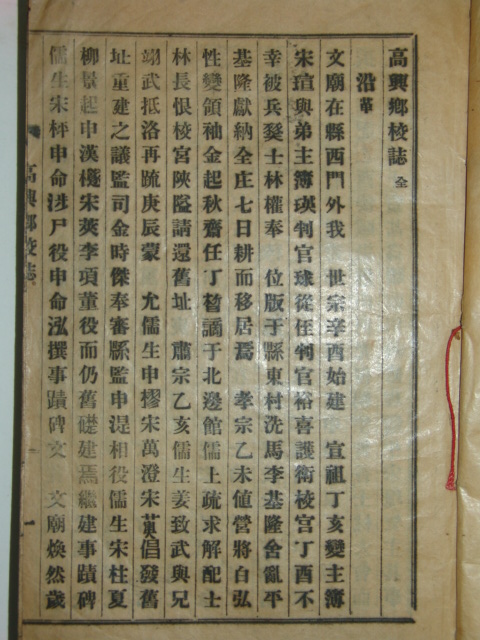 高興鄕校誌 全
沿革
文廟在縣西門外我 世宗辛酉始建 宣祖丁亥變主簿
宋瑄與弟主簿瑛判官球從侄判官裕喜護衛校宮丁酉不
幸被兵燹士林權奉 位版于縣東村洗馬李基隆舍亂平
基隆獻納全庄七日耕而移居焉 孝宗乙未値營將白弘
性變領袖金起秋齋任丁 謫于北邊館儒上疏求解配士
林長恨校宮陜隘請還舊址 肅宗乙亥儒生姜致武與兄
翊武抵洛再疏庚辰蒙 允儒生申樛宋萬澄宋 倡發舊
址重建之議監司金時傑奉審縣監申湜相役儒生宋柱夏
柳景起申漢 宋莢李項董役而仍舊礎建焉繼建事蹟碑
儒生宋枰申命 尸役申命泓撰事蹟碑文 文廟煥然歲
高興鄕校誌
一